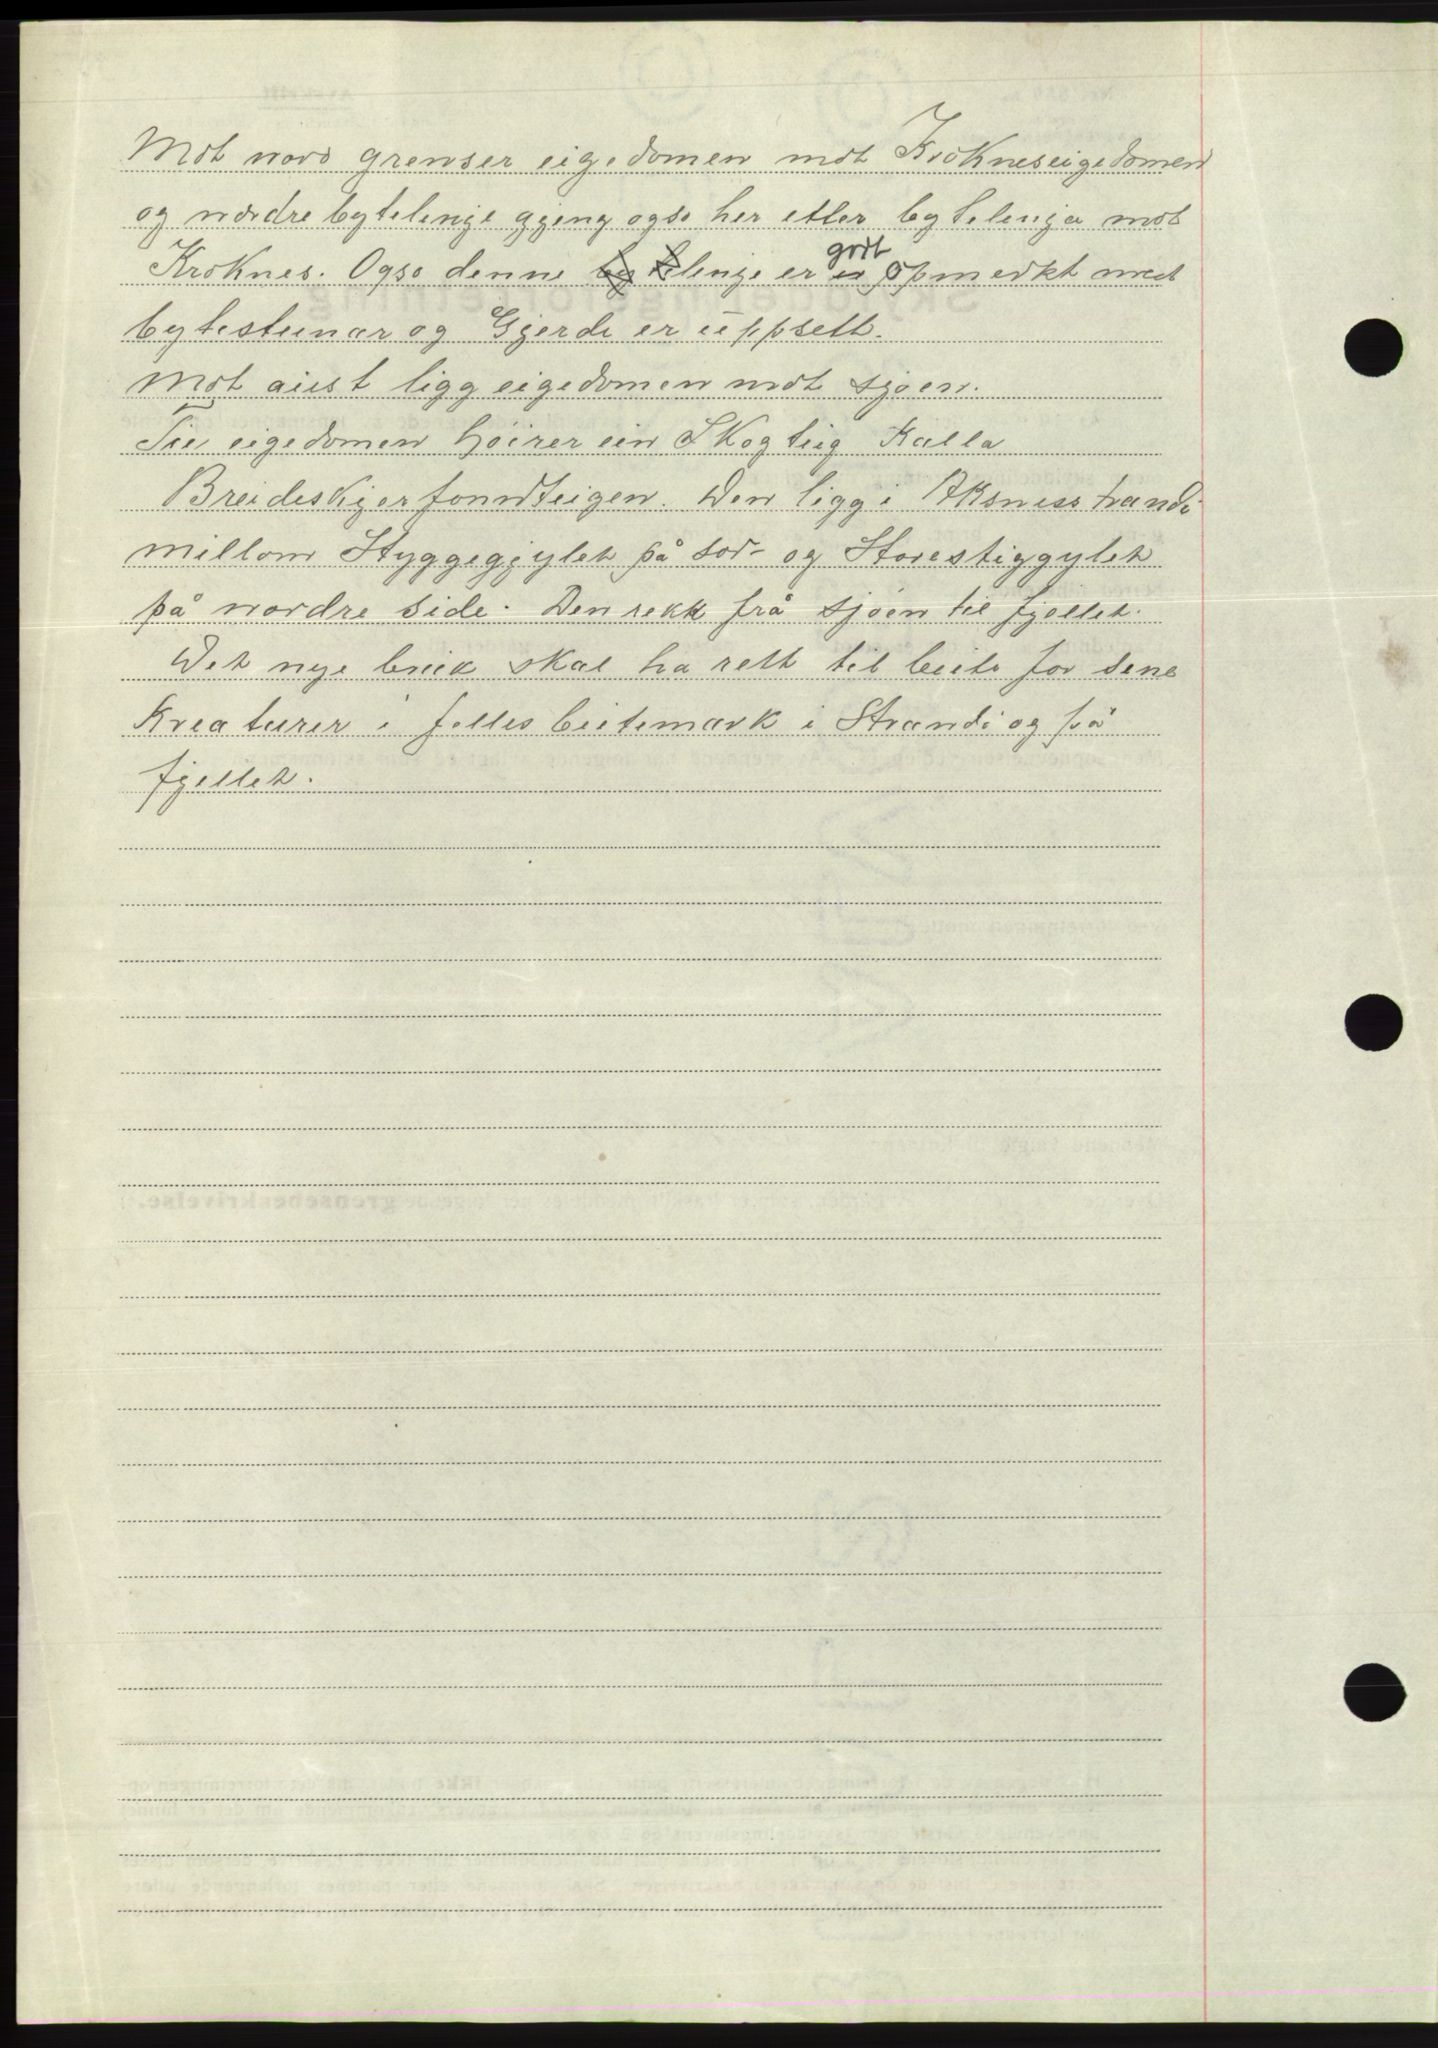 Mot nord grenser eigedomen mot Krokneseigedomen
og nordre bytelenje gjeng ogso her etter bytelenja mot
Kroknes. Ogso denne lenje er godt opmerkt med
bytesteinar og Gjerde er uppsett.
Mot aust ligg eigedomen mot sjøen.
Til eigedomen høirer ein Skogteig kalla
Breideskjerfonnteigen. Den ligg i Aksnesstrandi
millom Styggegjylet på sør- og Storestiggylet
på nordre side. Den rekk frå sjøen til fjellet.
Det nye bruk skal ha rett til beite for sine
Kreaturer i felles beitemark i Strandi og på
fjellet.